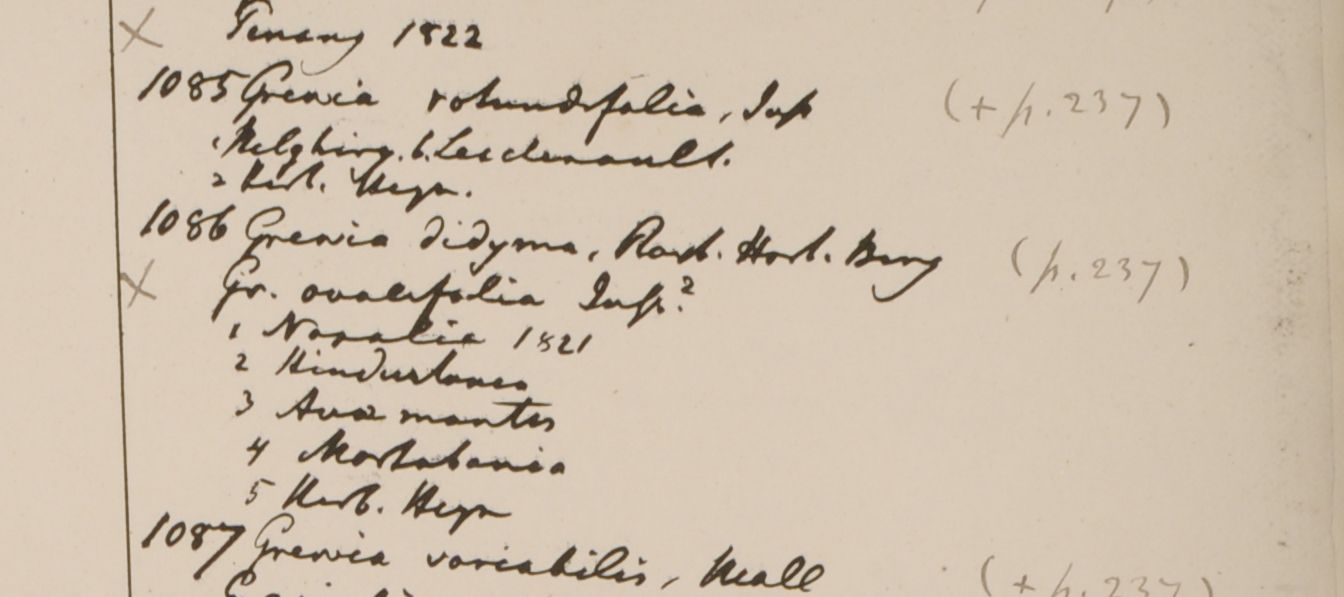 × Penang 1822
1085 Grewia rotundifolia, Jusp (+ p. 237)
1 Nelghirry. b. Leschenault.
2 Herb. Heyn.
1086 Grewia didyma, Roxb. Hort. Beng (p. 237)
× Gr. ovalifolia Jusp.?
1 Noalia 1821
2 Hindustania
3 Ava montes
4 Martabania
5 Herb. Heyn
1087 Grewia variabilis, Wall (+ p. 237)